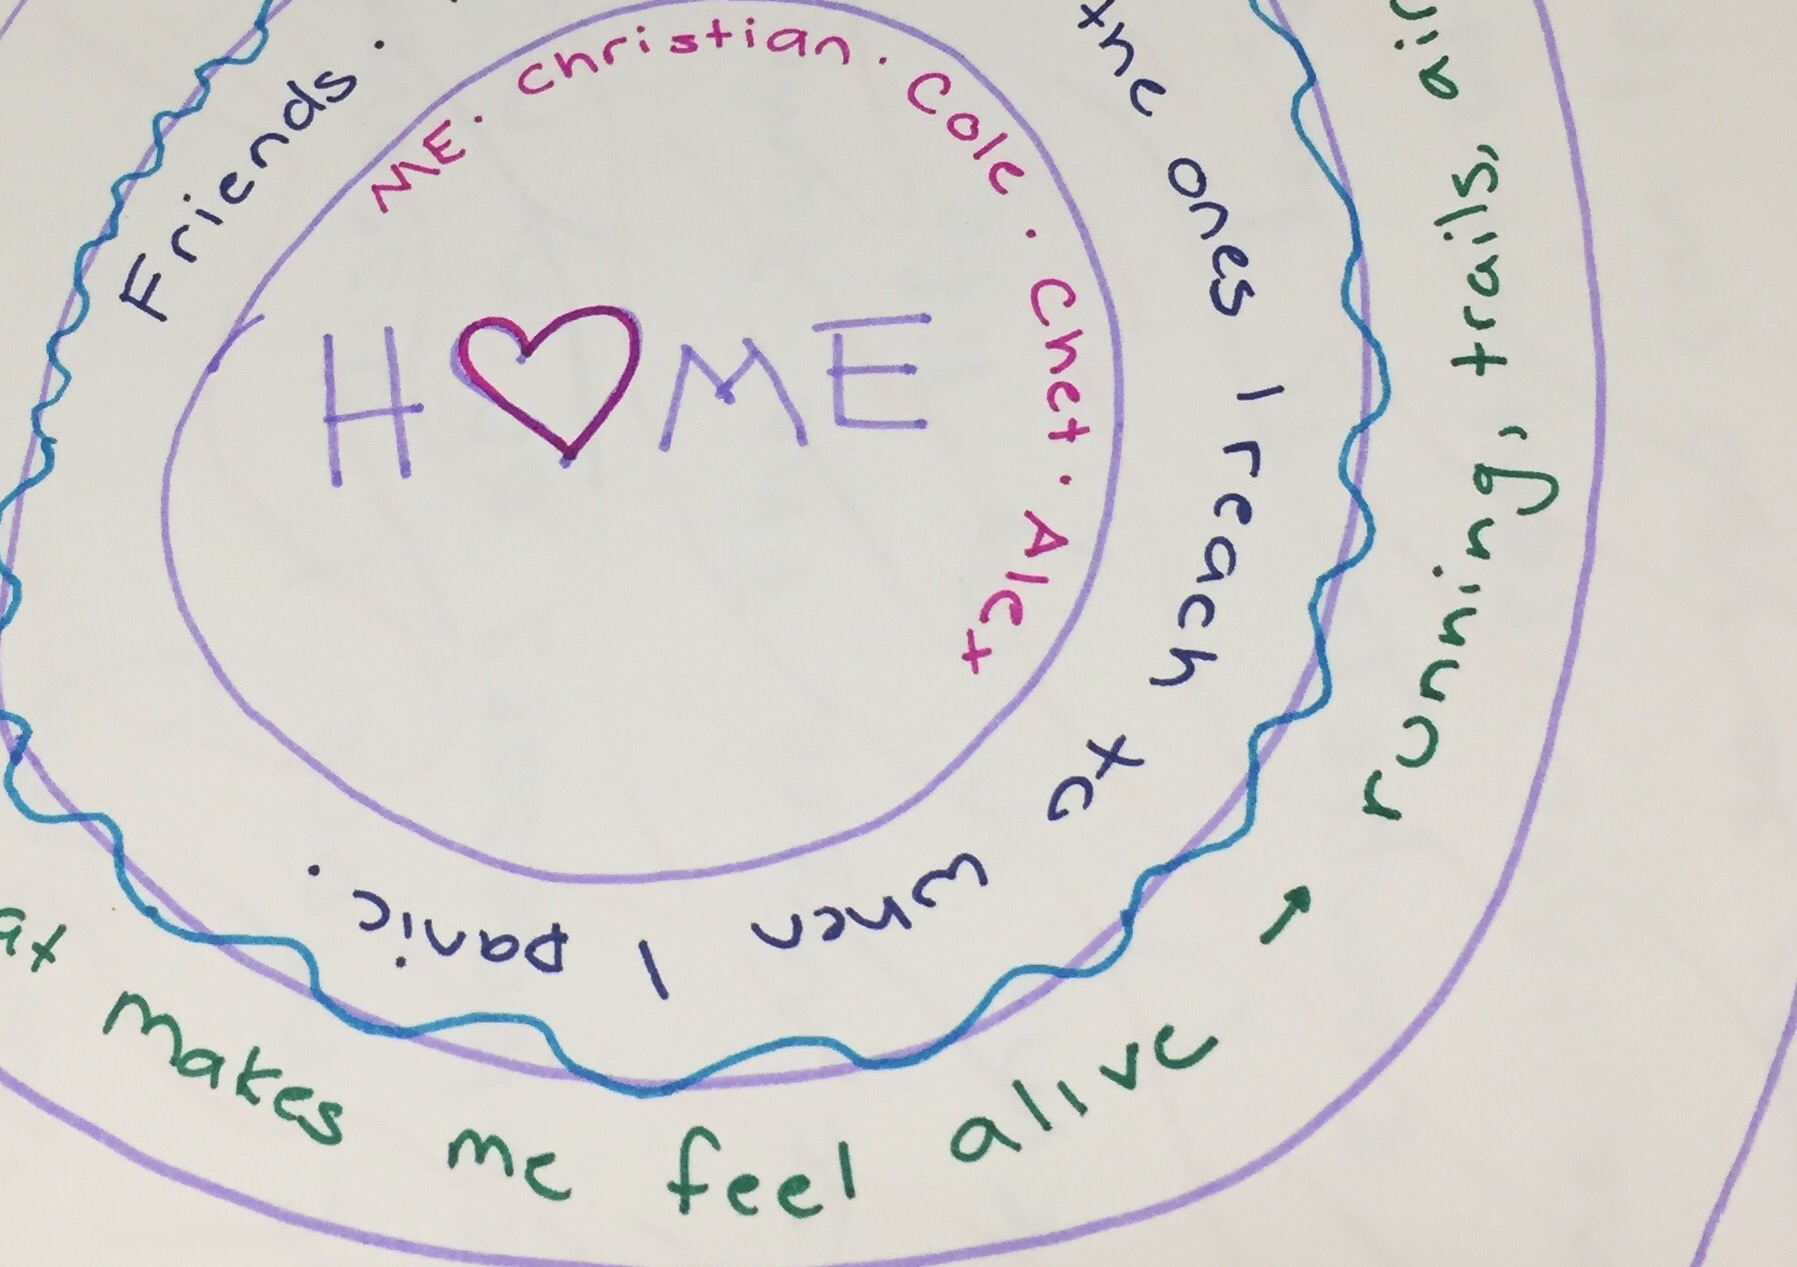 ME. Christian. Cole. Chet. Alex
HOME
Friends.
the ones I reach to when I panic.
makes me feel alive → running, trails,